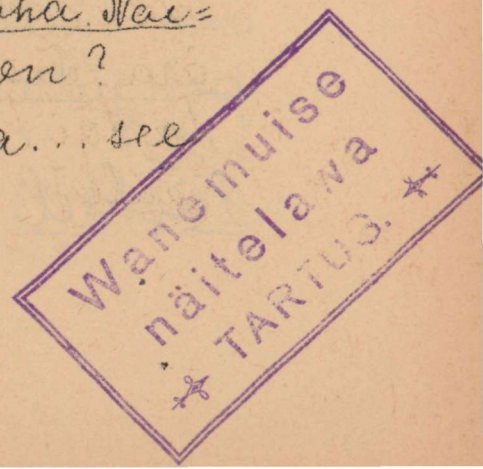 Nai=
en?
a... see
Wanemuise
näitelawa
TARTUS.